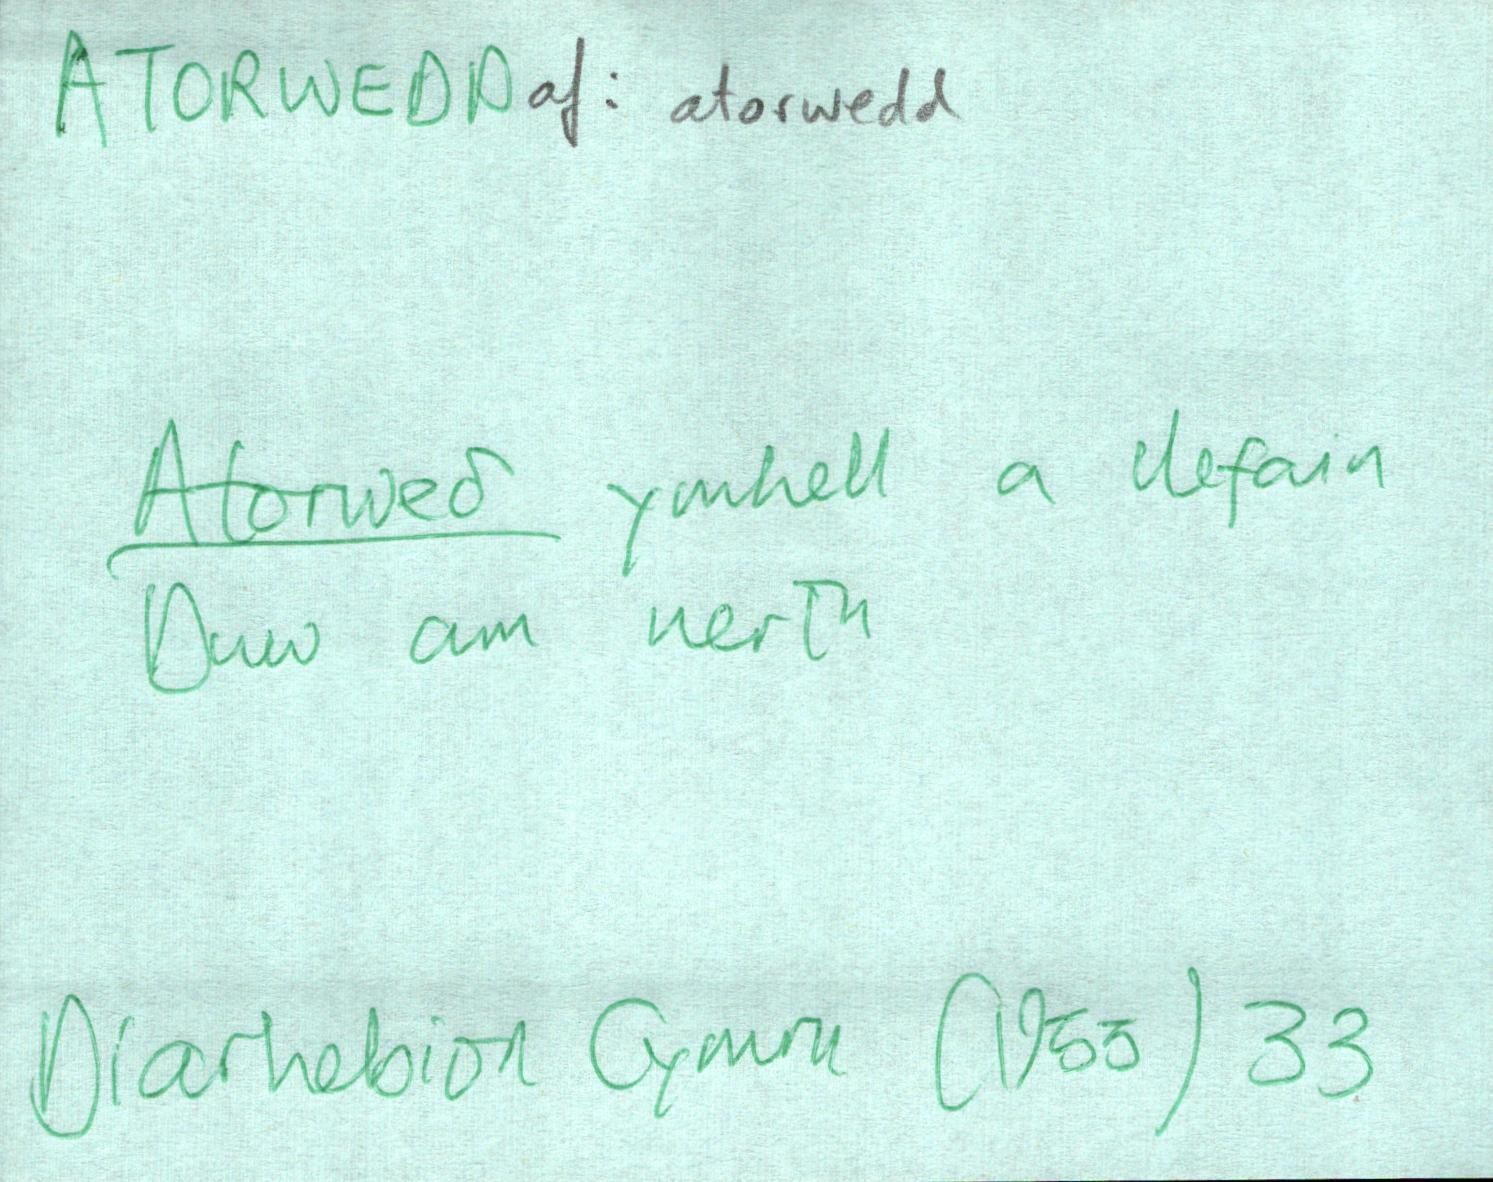 ATORWEDDaf: atorwedd
Atorweđ ymhell a llefain
Duw am nerth
Diarhebion Cymru (1955) 33